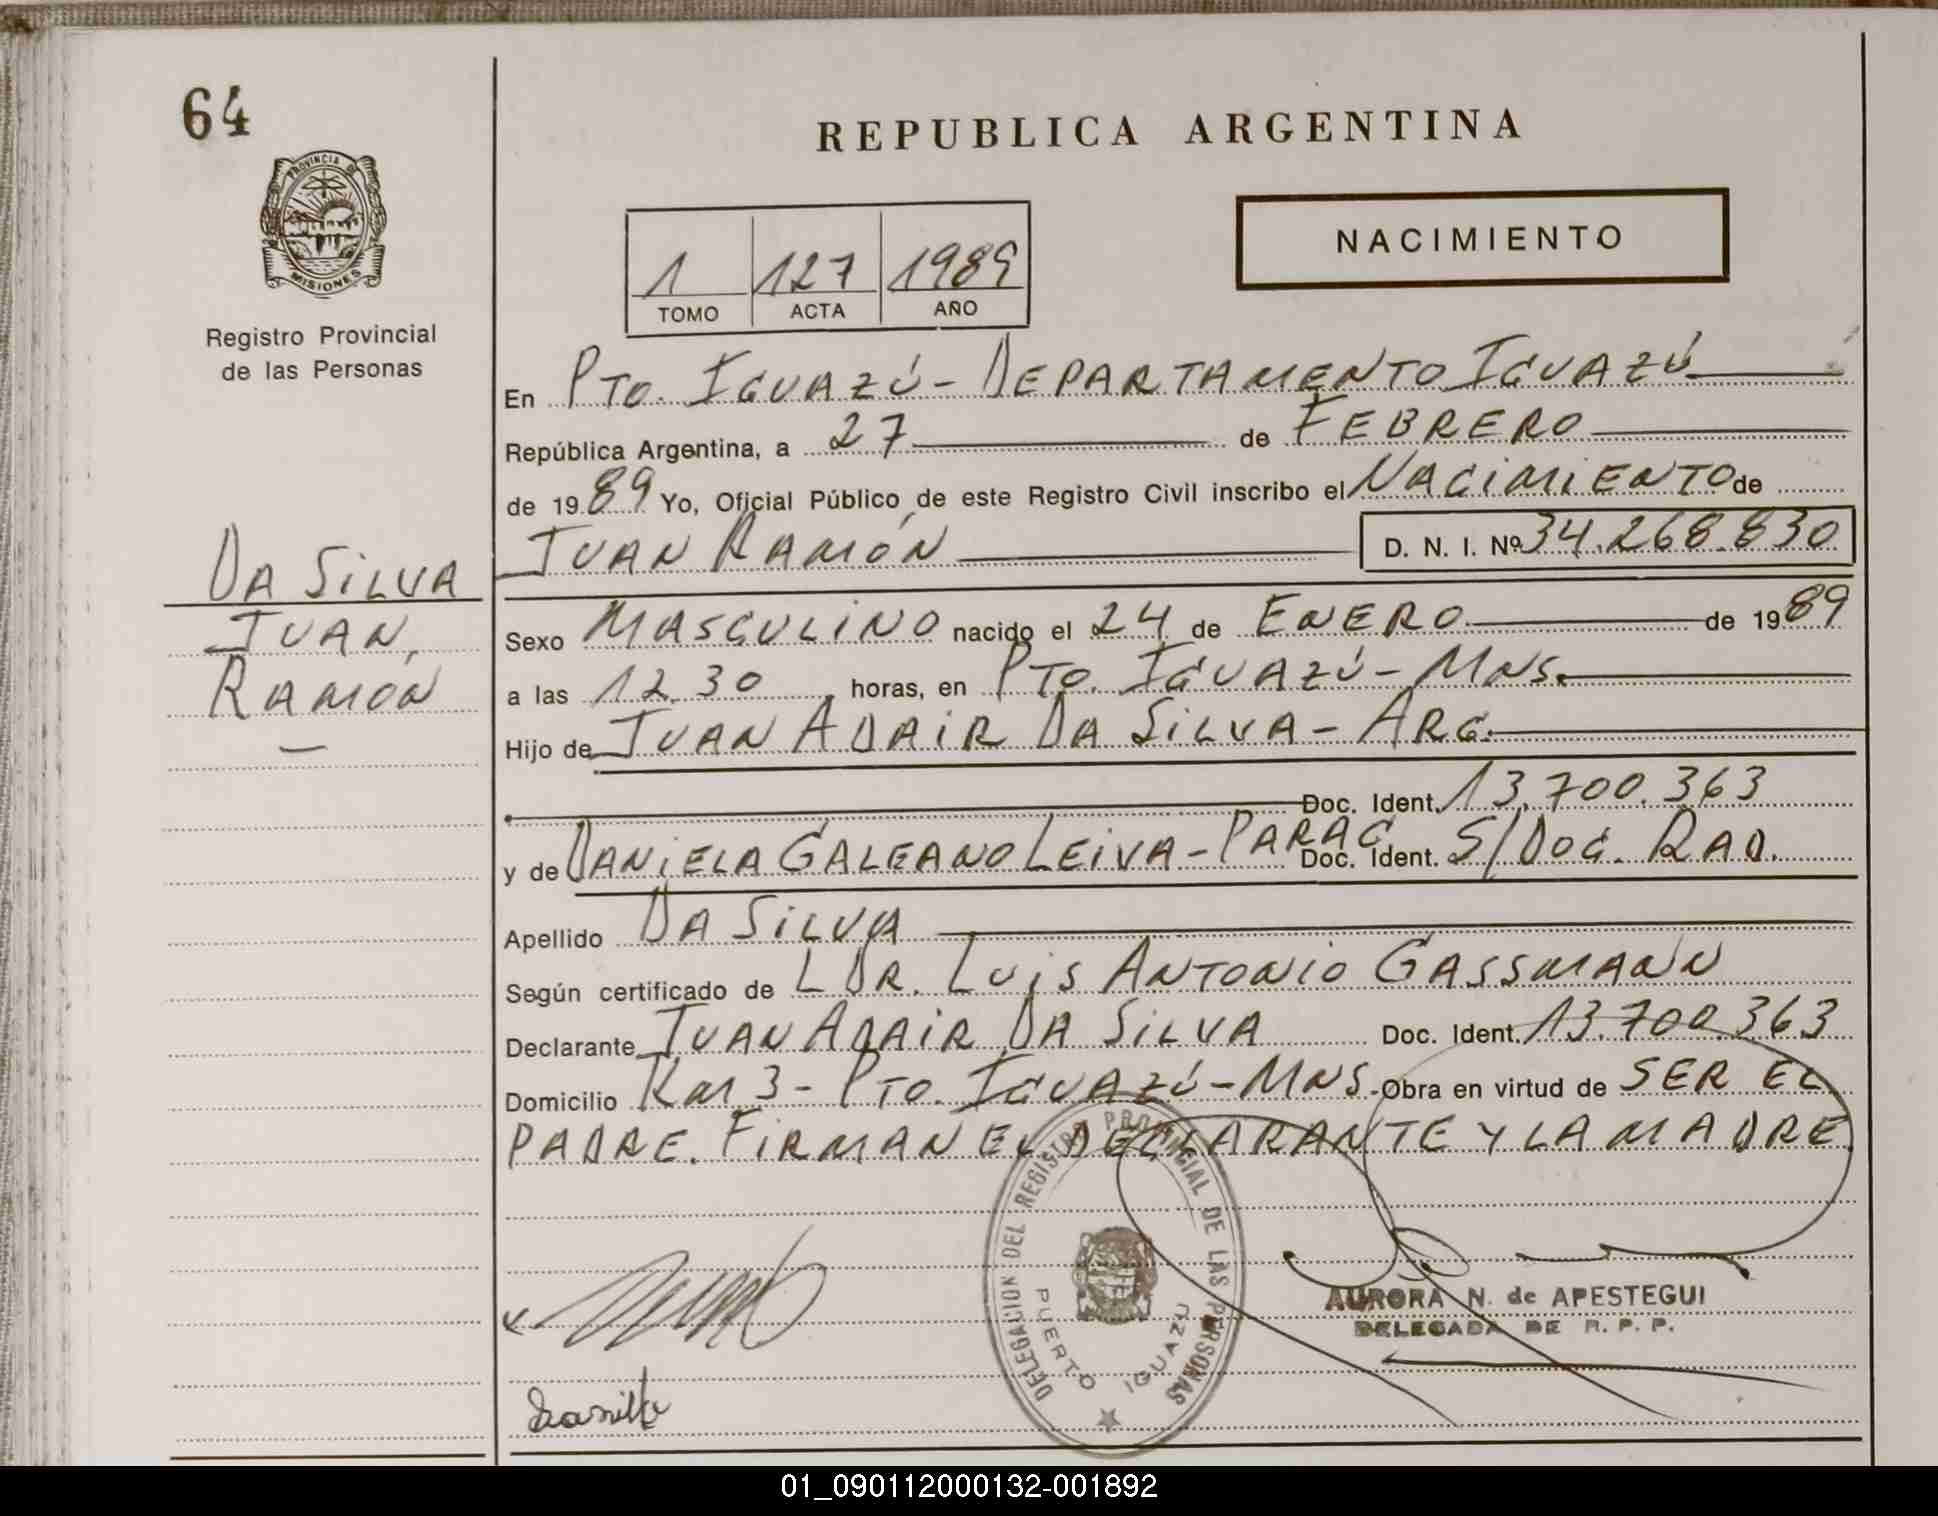 64
PROVINCIA DE
MISIONES
Registro Provincial
de las Personas
DA SILVA
JUAN
RAMÓN
REPUBLICA ARGENTINA
1 127 1989
TOMO ACTA AÑO
NACIMIENTO
En PTO. IGUAZÚ - DEPARTAMENTO IGUAZÚ
República Argentina, a 27 de FEBRERO
de 1989 Yo, Oficial Público de este Registro Civil inscribo el NACIMIENTO de
JUAN RAMÓN D. N. I. Nº 34.268.830
Sexo MASCULINO nacido el 24 de ENERO de 1989
a las 12.30 horas, en PTO. IGUAZÚ - MNS.
Hijo de JUAN ADAIR DA SILVA - ARG.
Doc. Ident. 13.700.363
y de DANIELA GALEANO LEIVA - PARAG Doc. Ident. S/DOC. RAD.
Apellido DA SILVA
Según certificado de L DR. LUIS ANTONIO GASSMANN
Declarante JUAN ADAIR DA SILVA Doc. Ident. 13.700.363
Domicilio KM 3 - PTO. IGUAZÚ - MNS. Obra en virtud de SER EL
PADRE. FIRMAN EL DECLARANTE Y LA MADRE
DELEGACION DEL REGISTRO PROVINCIAL DE LAS PERSONAS
PUERTO IGUAZU
AURORA N. de APESTEGUI
DELEGADA DE R. P. P.
01_090112000132-001892